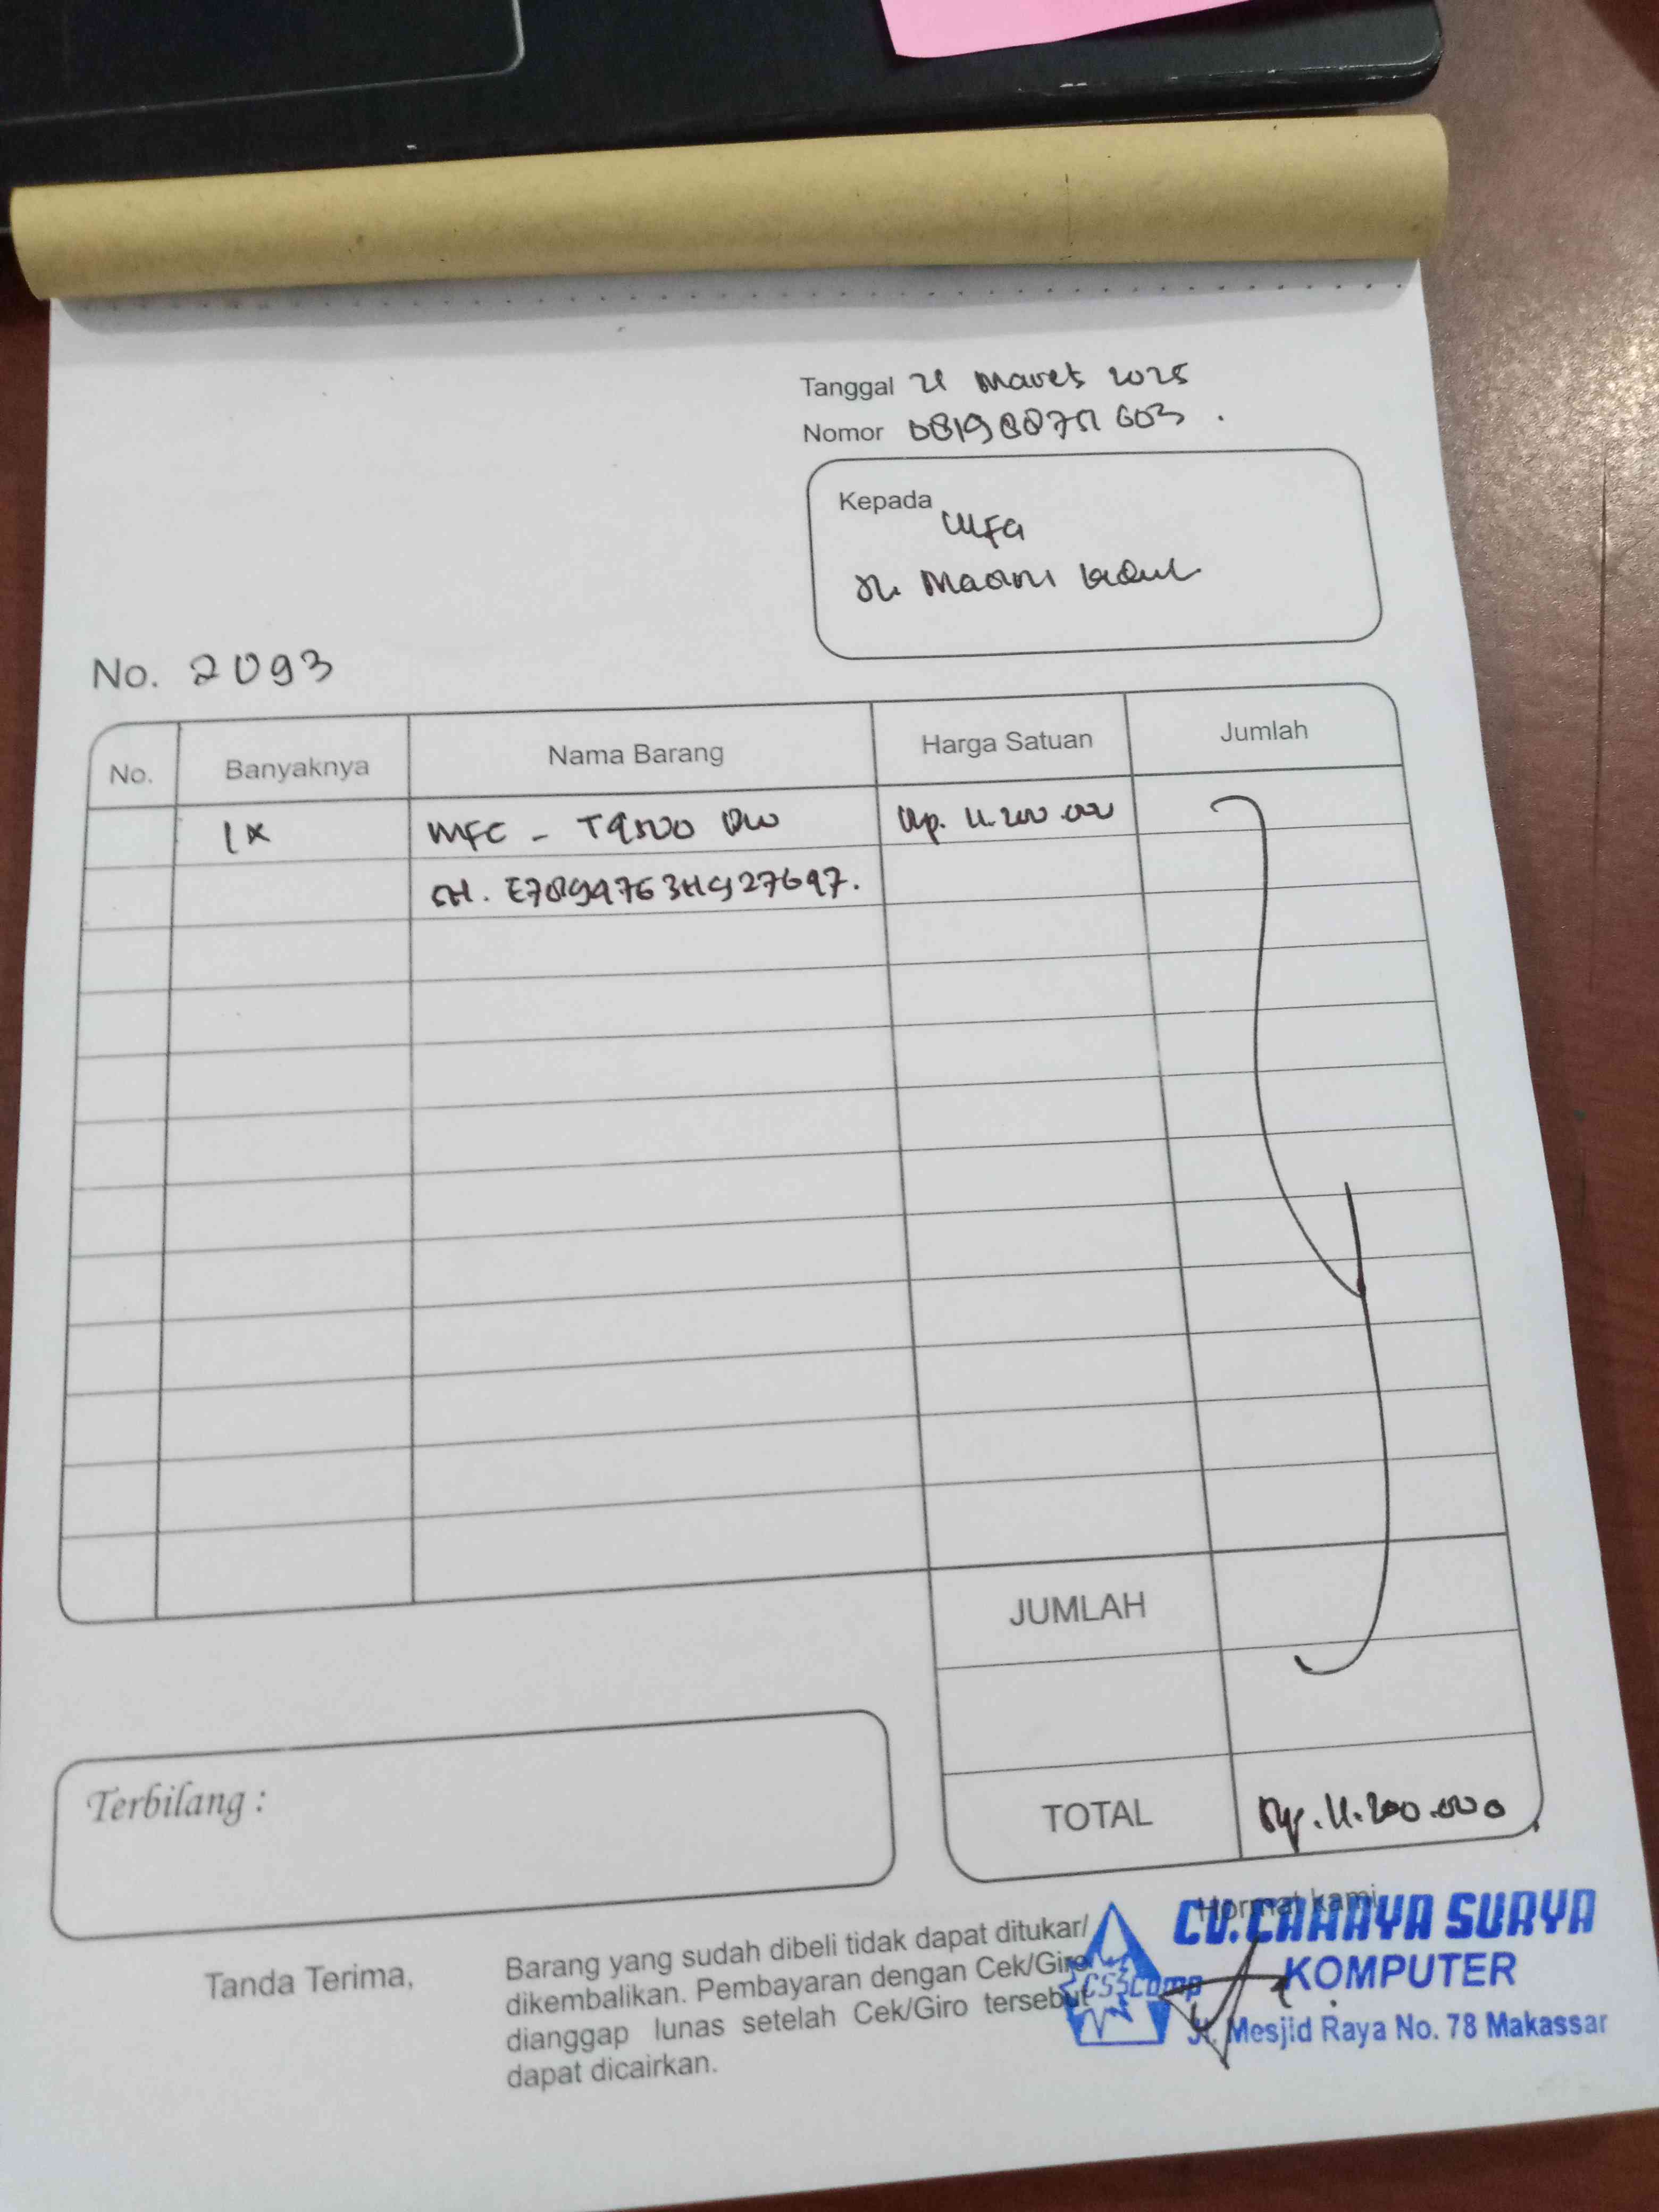 Tanggal 21 Maret 2025
Nomor
Kepada
Ulfa
Jl.
No. 2093
No. Banyaknya Nama Barang Harga Satuan Jumlah
1x MFC - T9500 DW Rp. 11.200.000
SN.
JUMLAH
TOTAL Rp. 11.200.000
Terbilang :
Tanda Terima,
Barang yang sudah dibeli tidak dapat ditukar/
dikembalikan. Pembayaran dengan Cek/Giro
dianggap lunas setelah Cek/Giro tersebut
dapat dicairkan.
Hormat kami,
CV. CAHAYA SURYA
KOMPUTER
CSSComp
Jl. Mesjid Raya No. 78 Makassar